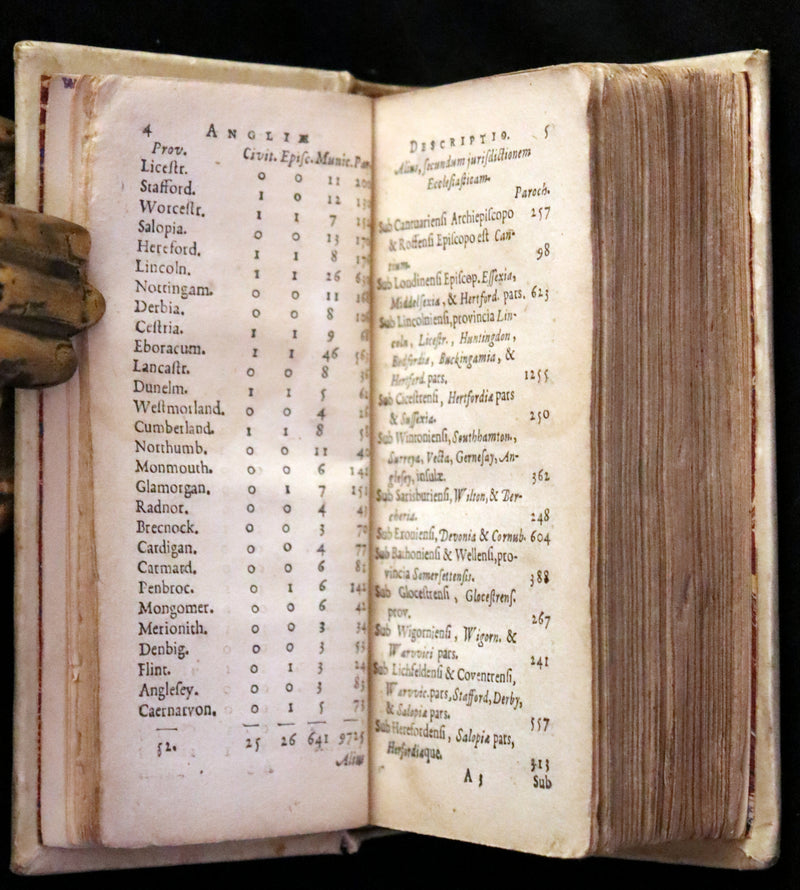 4 ANGLIÆ
Prov. Civit. Epiſc. Munic. Par
Liceſtr. 0 0 11
Stafford. 1 0 12
Worceſtr. 1 1 7
Salopia. 0 0 13
Hereford. 1 1 8
Lincoln. 1 1 26
Nottingam. 0 0 11
Derbia. 0 0 8
Ceſtria. 1 1 9
Eboracum. 1 1 46
Lancaſtr. 0 0 8
Dunelm. 1 1 5
Weſtmorland. 0 0 4
Cumberland. 1 1 8
Northumb. 0 0 11
Monmouth. 0 0 6
Glamorgan. 0 1 7 151
Radnor. 0 0 4
Brecnock. 0 0 3 70
Cardigan. 0 0 4 77
Carmard. 0 0 6 81
Penbroc. 0 1 6 142
Mongomer. 0 0 6
Merionith. 0 0 3 34
Denbig. 0 0 3 53
Flint. 0 1 3 24
Angleſey. 0 0 3 83
Caernarvon. 0 1 5 73
52. 25 26 641 9725
Alius
DESCRIPTIO. 5
Alius, ſecundum juriſdictionem
Eccleſiaſticam.
Paroch.
Sub Cantuarienſi Archiepiſcopo 257
& Roffenſi Epiſcopo eſt Can-
tium. 98
Sub Londinenſi Episcop. Eſſexia,
Middelſexia, & Hertford. pars. 623
Sub Lincolnienſi, provincia Lin-
coln, Liceſtr., Huntingdon,
Bedfordia, Buckingamia, &
Hertford. pars. 1255
Sub Ciceſtrenſi, Hertfordiæ pars
& Suſſexia. 250
Sub Wintonienſi, Southhamton.,
Surreya, Vecta, Gerneſay, An-
gleſey, inſulæ. 362
Sub Sarisburienſi, Wilton, & Ber-
cheria. 248
Sub Exonienſi, Devonia & Cornub. 604
Sub Bathonienſi & Wellenſi, pro-
vincia Somerſettenſis. 388
Sub Gloceſtrenſi, Gloceſtrenſ.
prov. 267
Sub Wigornienſi, Wigorn. &
Warvvici pars. 241
Sub Lichfeldenſi & Coventrenſi,
Warvvic. pars, Stafford, Derby,
& Salopiæ pars. 557
Sub Herefordenſi, Salopiæ pars,
Herfordiaque. 313
A 3 Sub